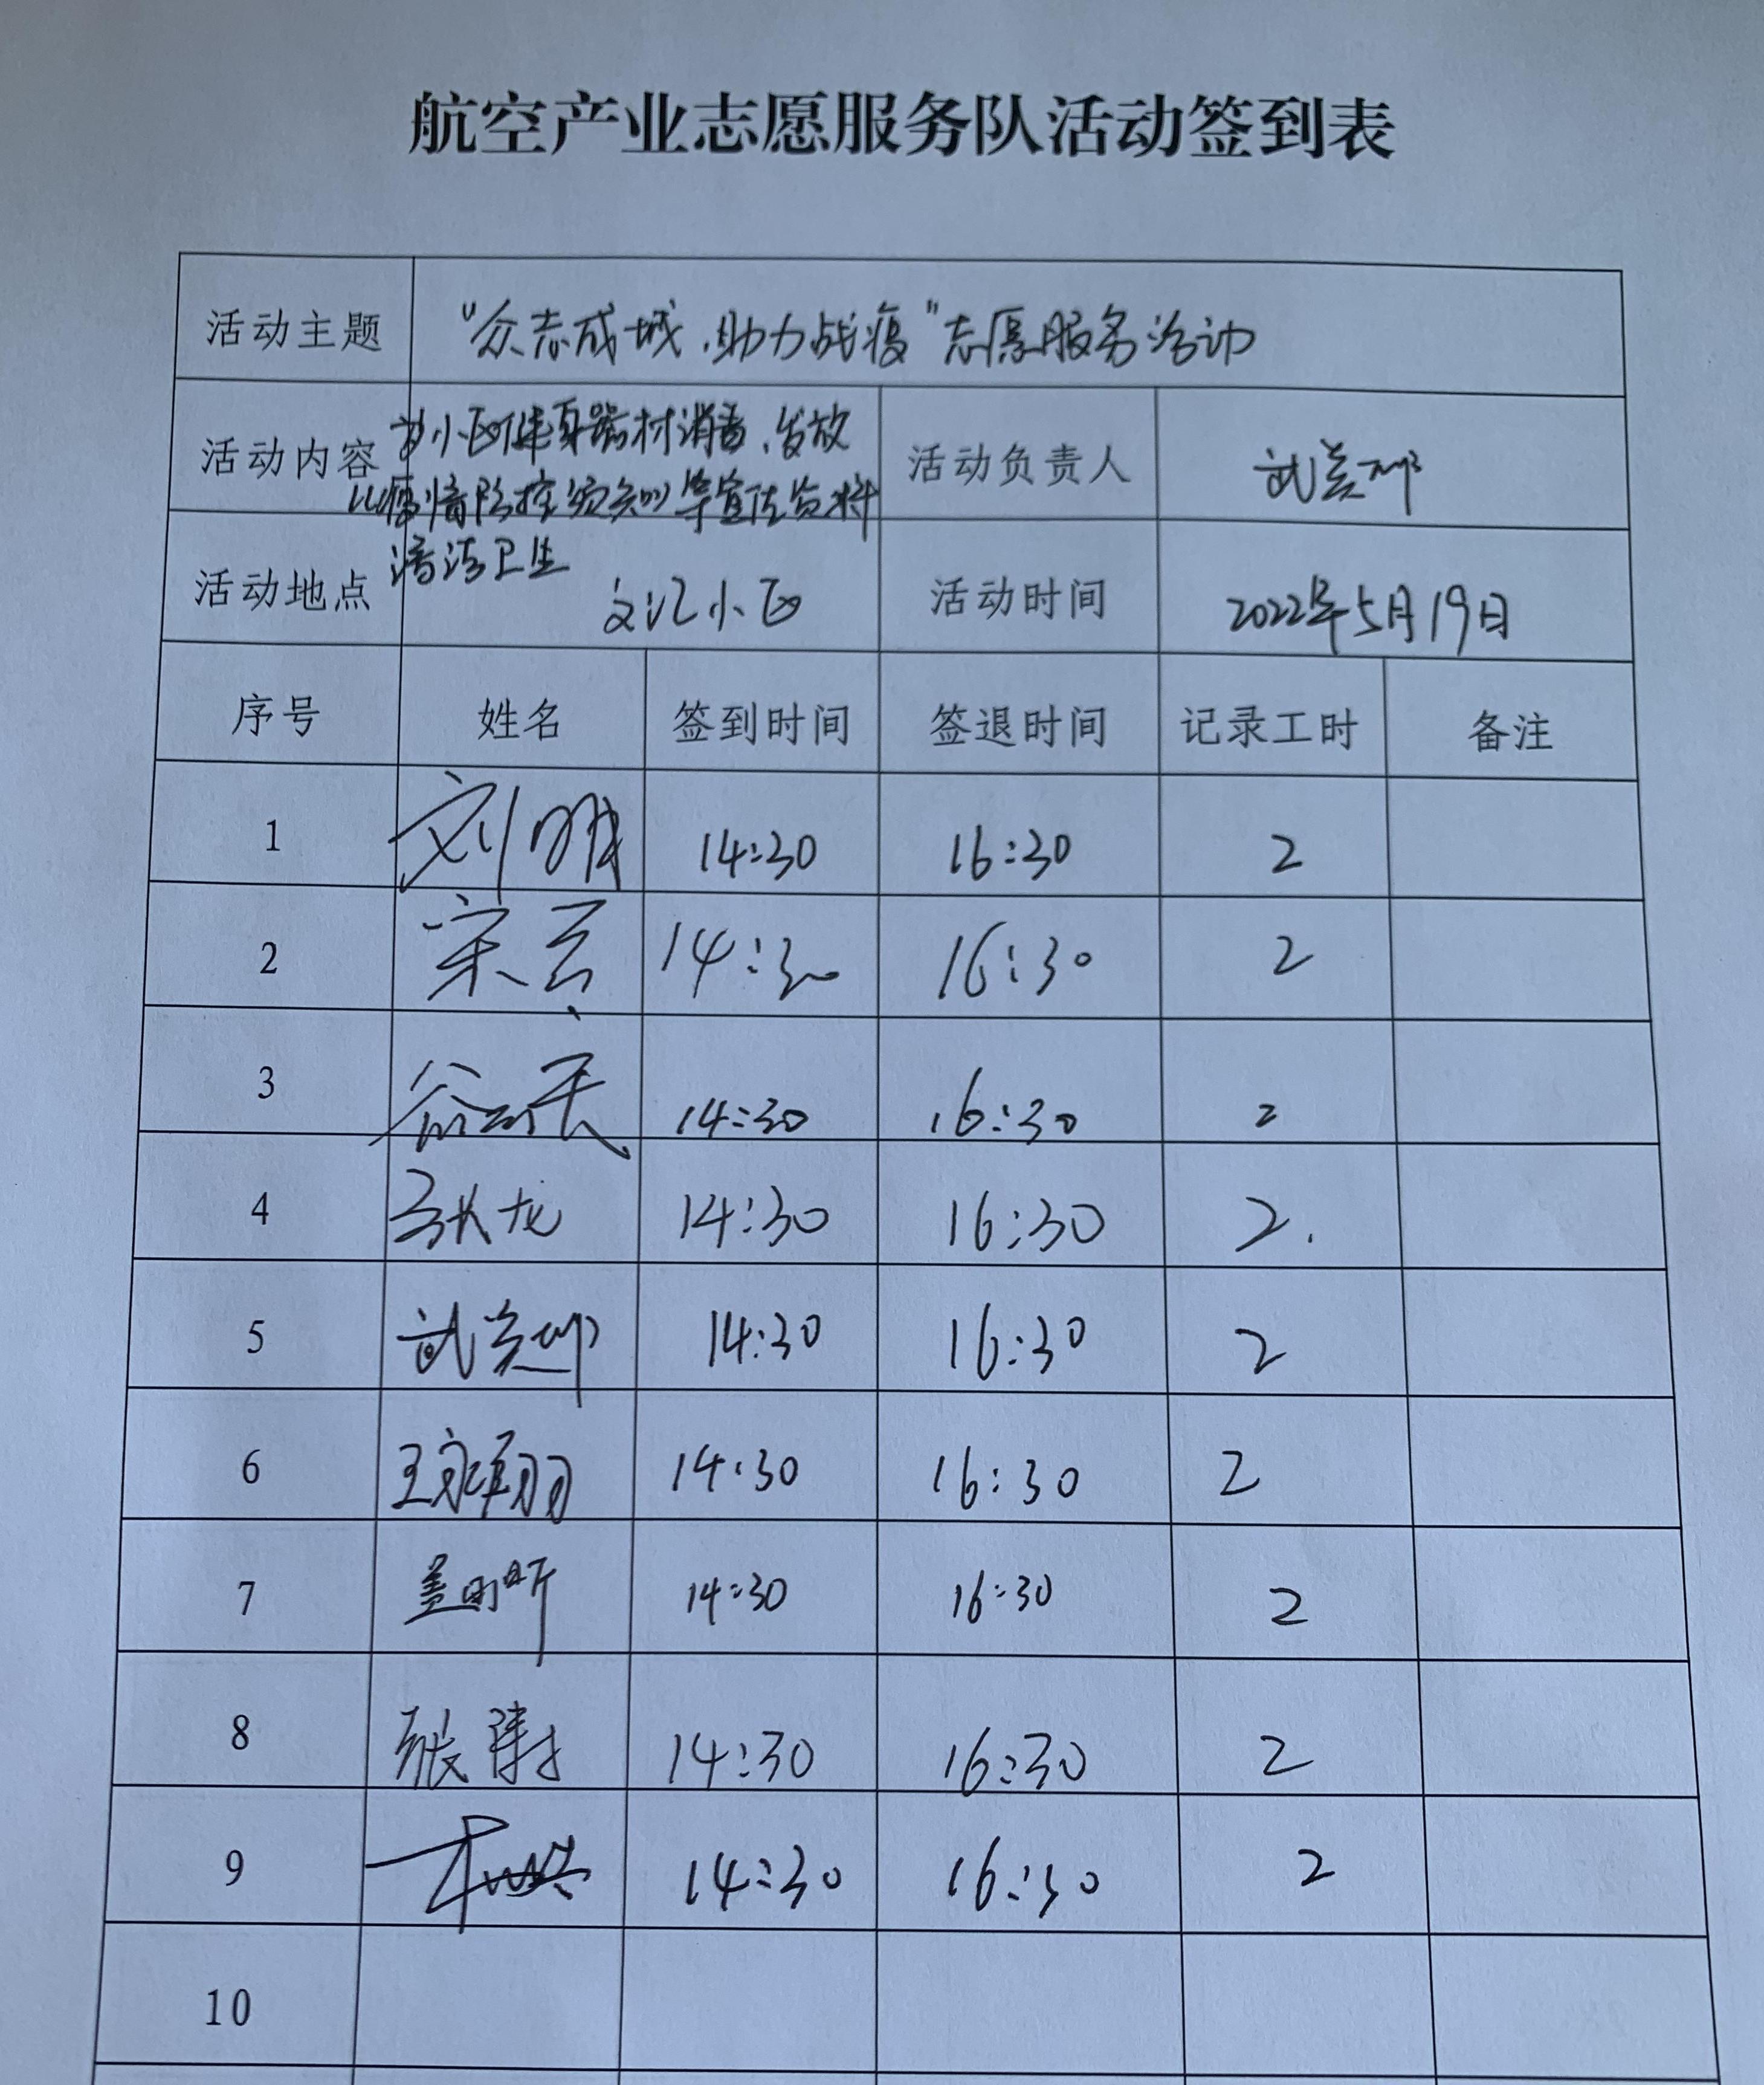 航空产业志愿服务队活动签到表
活动主题 “众志成城,助力战疫”志愿服务活动
活动内容 对小区健身器材消毒,发放 活动负责人 武
疫情防控须知等宣传资料
清洁卫生
活动地点 文汇小区 活动时间 2022年5月19日
序号 姓名 签到时间 签退时间 记录工时 备注
1 刘明 14:30 16:30 2
2 宋云 14:30 16:30 2
3 谷 14:30 16:30 2
4 龙 14:30 16:30 2.
5 武 14:30 16:30 2
6 王 翔 14:30 16:30 2
7 盖明昕 14:30 16:30 2
8 张 14:30 16:30 2
9 14:30 16:30 2
10